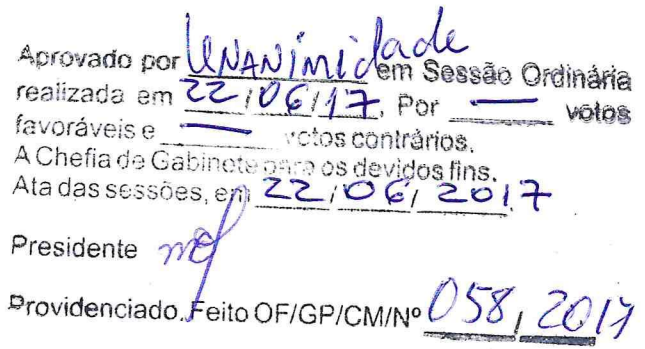 Aprovado por UNANimidade em Sessão Ordinária
realizada em 22/06/17, Por — votos
favoráveis e — votos contrários.
A Chefia de Gabinete para os devidos fins.
Ata das sessões, em 22/06/2017
Presidente
Providenciado. Feito OF/GP/CM/Nº 058, 2017